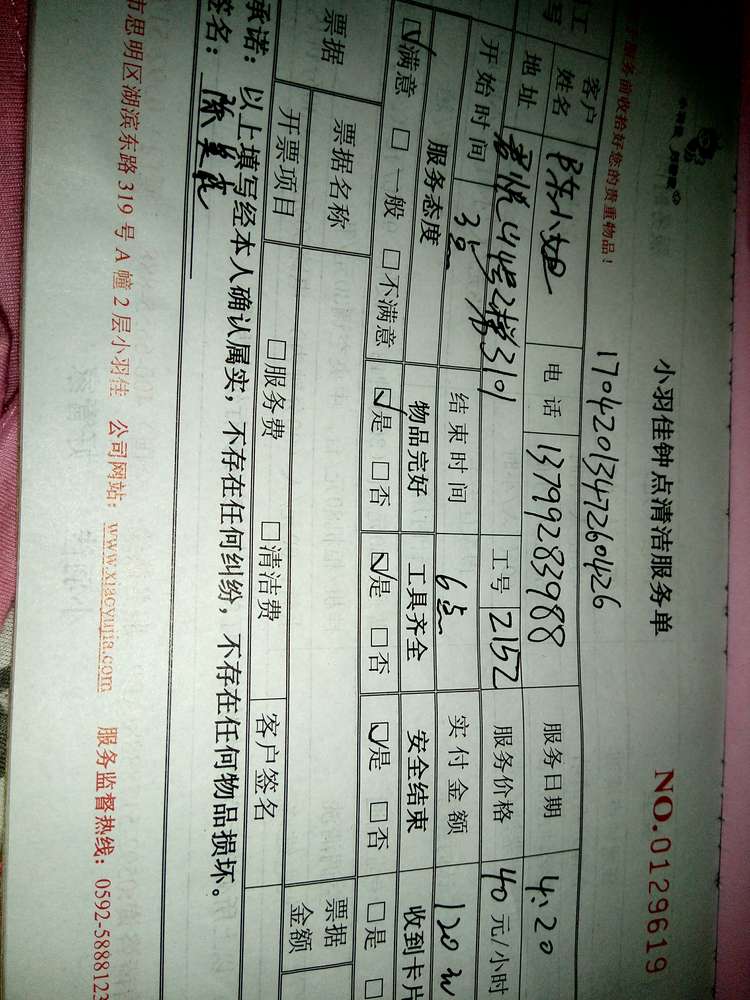 小羽佳钟点清洁服务单
NO.0129619
1704201347260426
服务前收拾好您的贵重物品！
客户姓名 陈小姐 电话 13799283988 服务日期 4.20
地址 2楼3101 工号 2152 服务价格 40元/小时
开始时间 3点 结束时间 6点 实付金额 120元
服务态度 物品完好 工具齐全 安全结束 收到卡片
☑满意 □一般 □不满意 ☑是 □否 ☑是 □否 ☑是 □否 □是 □
票据 票据名称 票据金额
开票项目 □服务费 □清洁费 客户签名
承诺：以上填写经本人确认属实，不存在任何纠纷，不存在任何物品损坏。
签名：陈
市思明区湖滨东路 319 号 A 幢 2 层小羽佳 公司网站：www.xiaoyujia.com 服务监督热线：0592-5888123